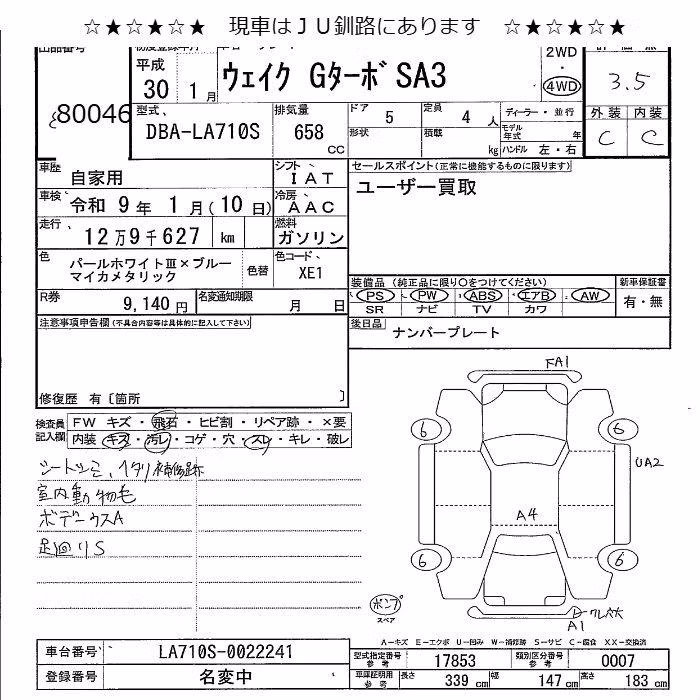 ☆★☆★☆★ 現車はＪＵ釧路にあります ☆★☆★☆★
出品番号
80046
初度登録年月
平成
30 1月
ウェイク GターボSA3
2WD
・
4WD
3.5
型式
DBA-LA710S
排気量
658
CC
ドア 5 定員 4 人
形状 積載 kg
ディーラー・並行
モデル年式 年
ハンドル 左・右
外装 内装
C C
車歴 自家用
シフト IAT
車検 令和 9年 1月(10日)
冷房 AAC
走行 12万9千627 km
燃料 ガソリン
色 パールホワイトⅢ×ブルー
マイカメタリック
色替
色コード XE1
R券 9,140円
名変通知期限 月 日
セールスポイント(正常に機能するものに限ります)
ユーザー買取
装備品 (純正品に限り○をつけてください)
PS PW ABS エアB AW
SR ナビ TV カワ
新車保証書
有・無
後日品 ナンバープレート
注意事項申告欄(不具合内容等は具体的に記入して下さい)
修復歴 有〔箇所 〕
検査員記入欄
FW キズ・飛石・ヒビ割・リペア跡・×要
内装 キズ・汚レ・コゲ・穴・スレ・キレ・破レ
シートシミ、ヘタリ補修跡
室内動物毛
ボデーウスA
足回りS
FA1
6 6
UA2
A4
6 6
ポンプ
スペア
A1
A-キズ E-エクボ U-凹み W-補修跡 S-サビ C-腐食 XX-交換済
車台番号 LA710S-0022241
登録番号 名変中
型式指定番号 参考 17853
類別区分番号 参考 0007
車庫証明用 参考 長さ 339 cm 幅 147 cm 高さ 183 cm